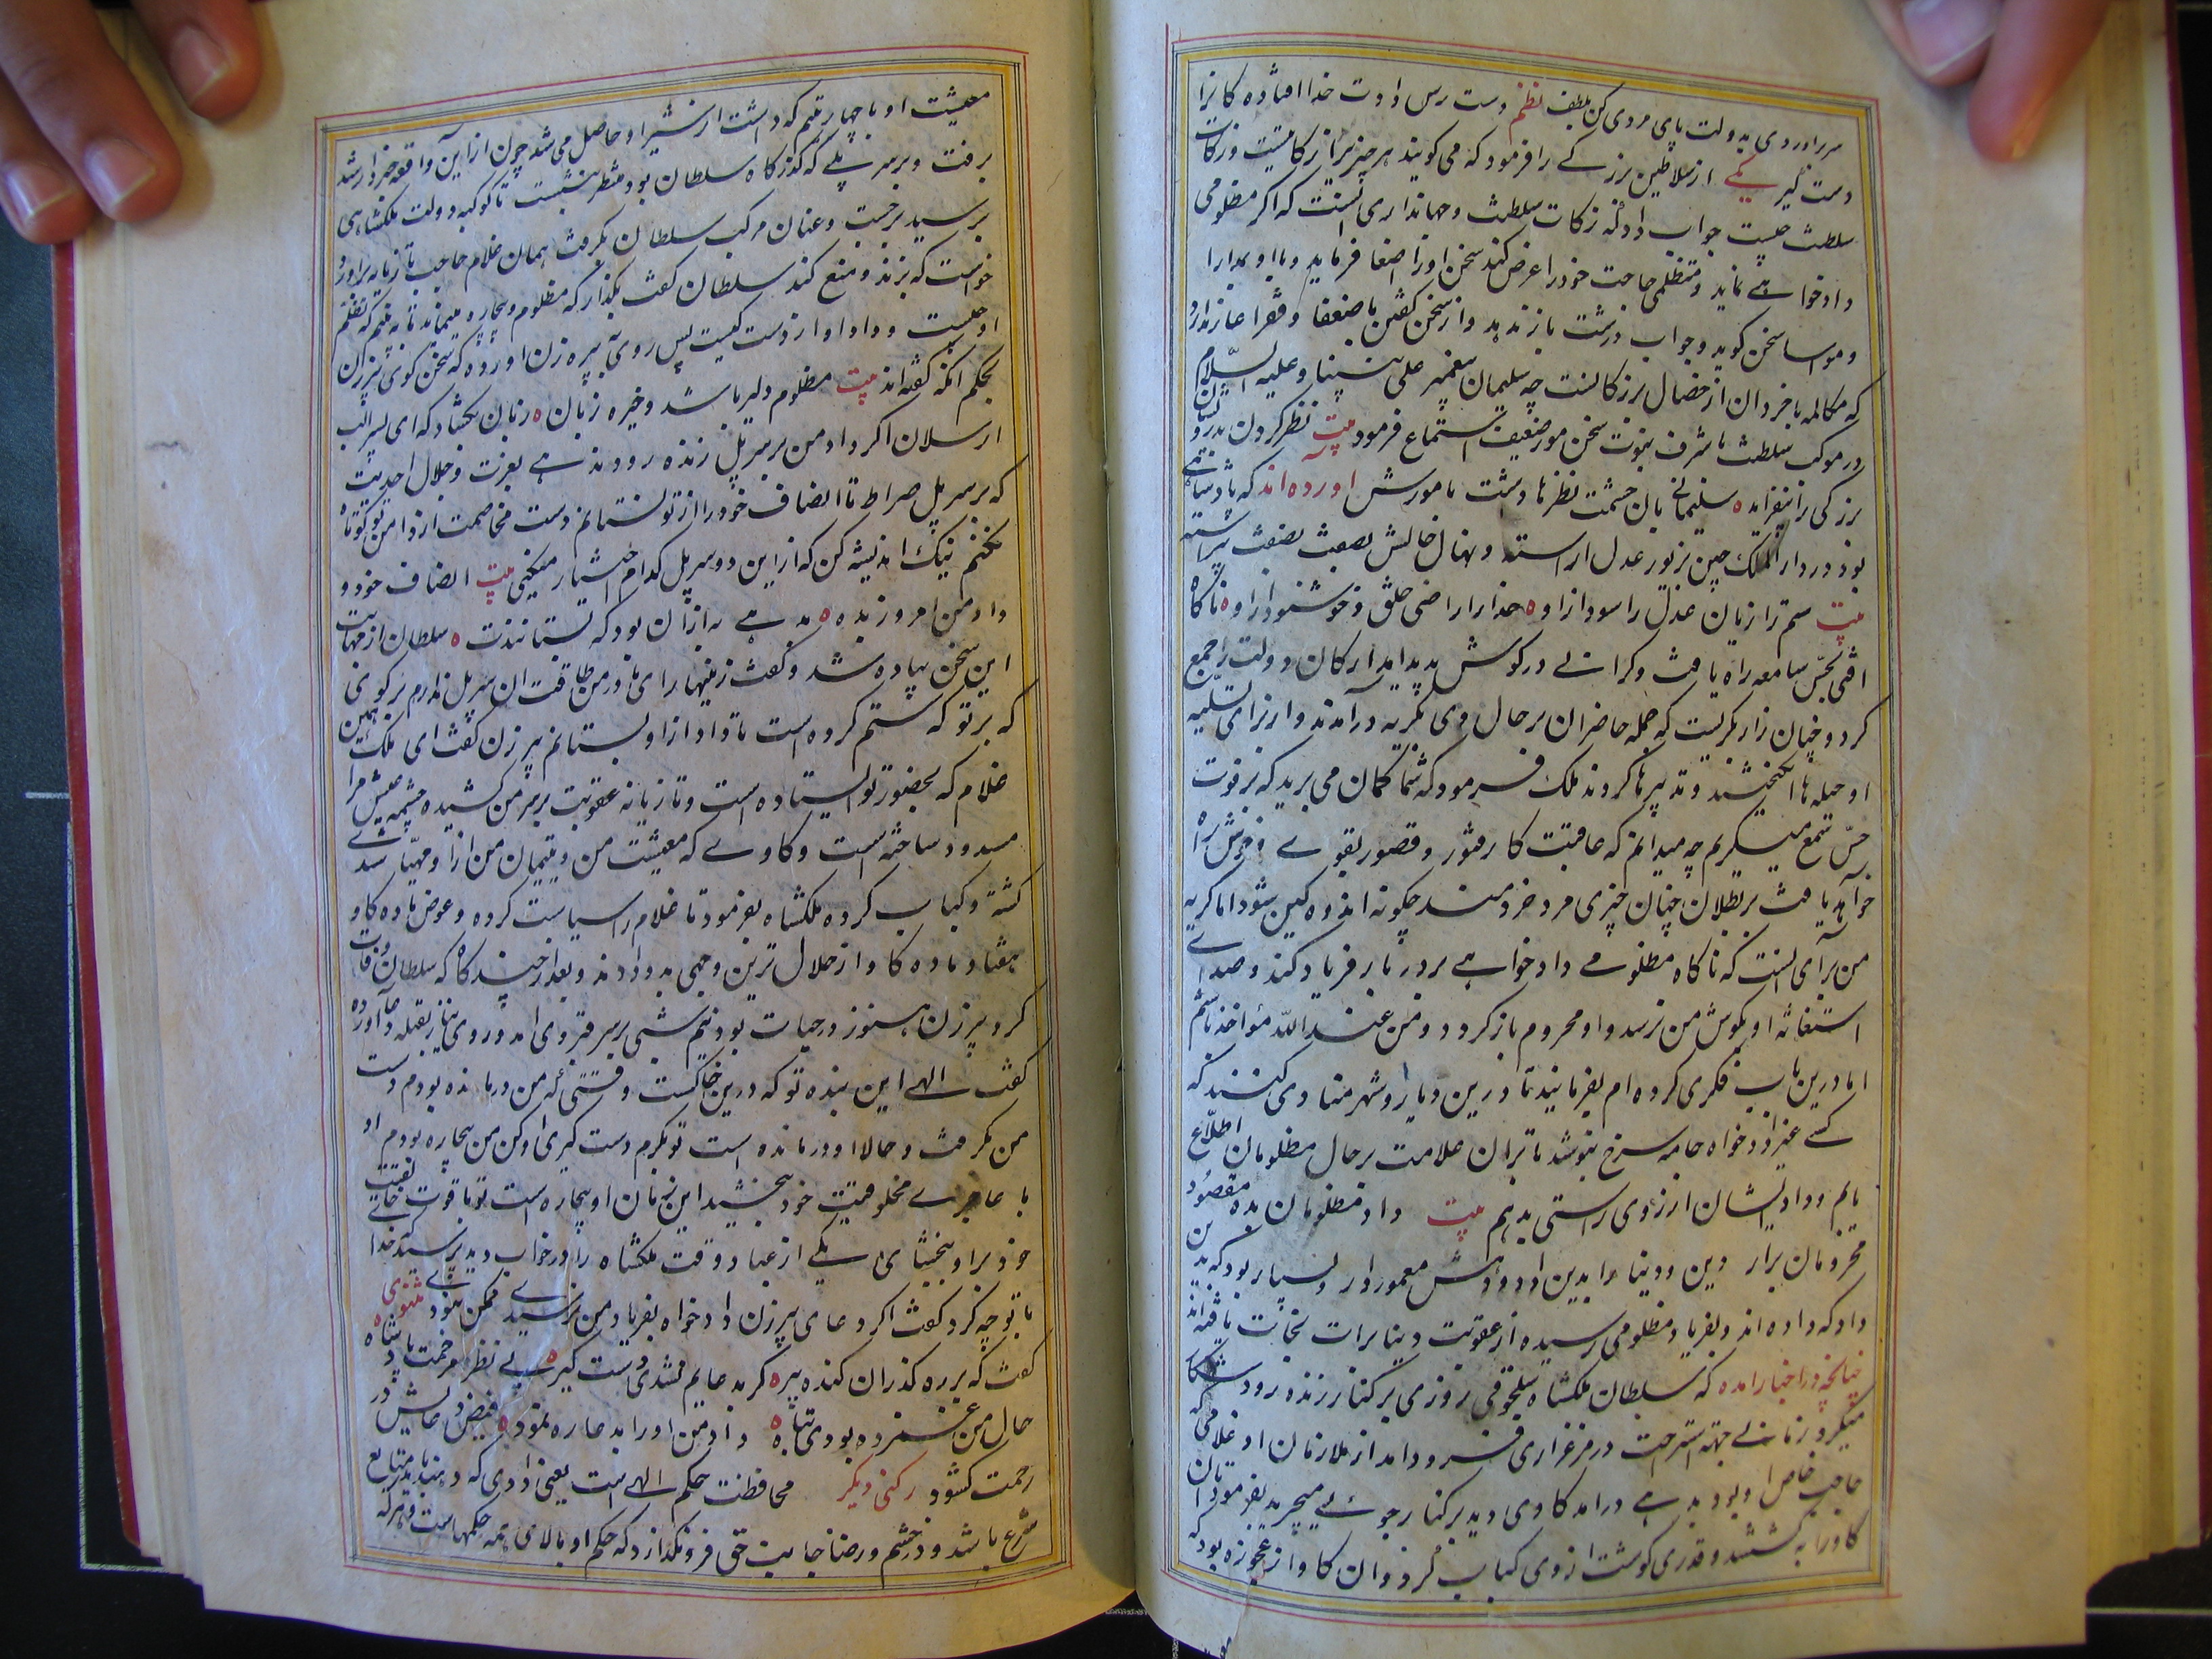 سرآوردی بدولت پای مردی کن بلطف نظم دست رس دادت خدا افتاده کانرا
دست گیر یکی از سلاطین بزرکی را فرمود که می کویند هر چیز را زکاتیست و زکات
سلطنت چیست جواب داد که زکات سلطنت و جهانداری آنست که اکر مظلومی
دادخواهی نماید و متظلمی حاجت خود را عرض کند سخن او را اصغا فرماید و با او بمدارا
و مواسا سخن کوید و جواب درشت باز ندهد و از سخن کفتن با ضعفا و فقرا عار ندارد
که مکالمه با خردان از خصال بزرکانست چه سلیمان پیغمبر علی نبینا و علیه السلام
در موکب سلطنت با شرف نبوت سخن مور ضعیف استماع فرمود بیت نظر کردن بدرویشان
بزرکی را نیفزاید سلیمان بان حشمت نظرها داشت با مورش اورده اند که پادشاهی
بود در دار الملک چین بزیور عدل اراسته و نهال حالش بصفت نصفت پیراسته
بیت ستم را زیان عدل را سود ازاو خدا را راضی خلق و خوشنود ازاو ناکاه
افتی بحس سامعه راه یافت و کرانی در کوشش پدید امد ارکان دولت را جمع
کرد و چنان زار بکریست که جمله حاضران بر حال وی بکریه درآمدند و از برای تسلیه
او حیله ها انکیختند و تدبیرها کردند ملک فرمود که شما کمان می برید که بر فوت
حس سمع میکریم چه میدانم که عاقبت کار فتور و قصور بقوی و حواس راه
خواهد یافت بر بطلان چنان چیزی مرد خردمند چکونه اندوهکین شود اما کریه
من برای آنست که ناکاه مظلومی دادخواهی بر در بار فریاد کند و صدای
استغاثه او بکوش من نرسد و او محروم باز کردد و من عند الله مؤاخذ باشم
اما درین باب فکری کرده ام بفرمایند تا درین دیار و شهر منادی کنند که
کسی غیر از دادخواه جامه سرخ نپوشد تا بران علامت بر حال مظلومان اطلاع
یابم و داد ایشان از روی راستی بدهم بیت داد مظلومان بده مقصود
محرومان برار دین و دنیا را بدین داد و دهش معمور دار و بسیار بود که بدین
داد که داده اند و بفریاد مظلومی رسیده از عقوبت دنیا برات نجات یافته اند
چنانچه در اخبار امده که سلطان ملکشاه سلجوقی روزی بر کنار زنده رود شکار
میکرد زمانی جهه استراحت در مرغزاری فرود امد از ملازمان او غلامی که
حاجب خاص او بود بدهی درامد کاوی دید بر کنار جوئی میچرید بفرمود تا ان
کاو را بکشتند و قدری کوشت از وی کباب کرد و ان کاو از عجوزه بود که
معیشت او با چهار یتیم که داشت از شیر او حاصل می شد چون از این واقعه خبردار شد
برفت و بر سر پلی که کذرکاه سلطان بود منتظر بنشست تا کوکبه دولت ملکشاهی
برسید برجست و عنان مرکب سلطان بکرفت همان غلام حاجب تازیانه براورد و
خواست که بزند و منع کند سلطان کفت بکذار که مظلوم و بیچاره مینماید تا به بینم که تظلم
او چیست و داد او از دست کیست پس روی به پیره زن اورده که سخن کوی پیرزن
بحکم انکه کفته اند بیت مظلوم دلیر باشد و خیره زبان زبان بکشاد که ای پسر الب
ارسلان اکر داد من بر سر پل زنده رود ندهی بعزت و جلال احدیت
که بر سر پل صراط تا انصاف خود را از تو نستانم دست مخاصمت از دامن تو کوتاه
نکنم نیک اندیشه کن که از این دو سر پل کدام اختیار میکنی بیت انصاف خود و
داد من امروز بده به ازان بود که بستانندت سلطان از مهابت
این سخن پیاده شد و کفت زینهار ای مادر من طاقت ان سر پل ندارم بر کوی
که بر تو که ستم کرده است تا داد تو از او بستانم پیر زن کفت ای ملک همین
غلام که بحضور تو ایستاده است و تازیانه عقوبت بر سر من کشیده چشمه عیش مرا
مسدود ساخته است و کاوی که معیشت من و یتیمان من از او مهیا شدی
کشته و کباب کرده ملکشاه بفرمود تا غلام را سیاست کرده و عوض ماده کاو
هفتاد ماده کاو از حلال ترین وجهی بدو دادند و بعد از چند کاه که سلطان وفات
کرد پیرزن هنوز در حیات بود نیم شبی بر سر قبر وی امد و روی نیاز بقبله دعا اورده
کفت الهی این بنده تو که درین خاکست وقتی که من درمانده بودم دست
من بکرفت و حالا او درمانده است تو بکرم دست کیری او کن من بیچاره بودم او
با عاجزی مخلوقیت خود ببخشید این زمان او بیچاره است تو با قوت خالقیت
خود بر او ببخشای یکی از عباد وقت ملکشاه را در خواب دید پرسید که خدا
با تو چه کرد کفت اکر دعای پیرزن دادخواه بفریاد من نرسیدی ممکن نبود مثنوی
کفت که بر ره کذران کنده پیره کر بدعایم نشدی دست کیره بی نظر مرحمت پادشاه
حال من غمزده بودی تباه داد من او را بدعا ره نمود فیض دعایش در
رحمت کشود رکنی دیکر محافظت حکم الهیست یعنی دادی که دهد باید متابع
شرع باشد و در خشم و رضا جانب حق فرو نکذارد که حکم او بالای همه حکمهاست و هر که